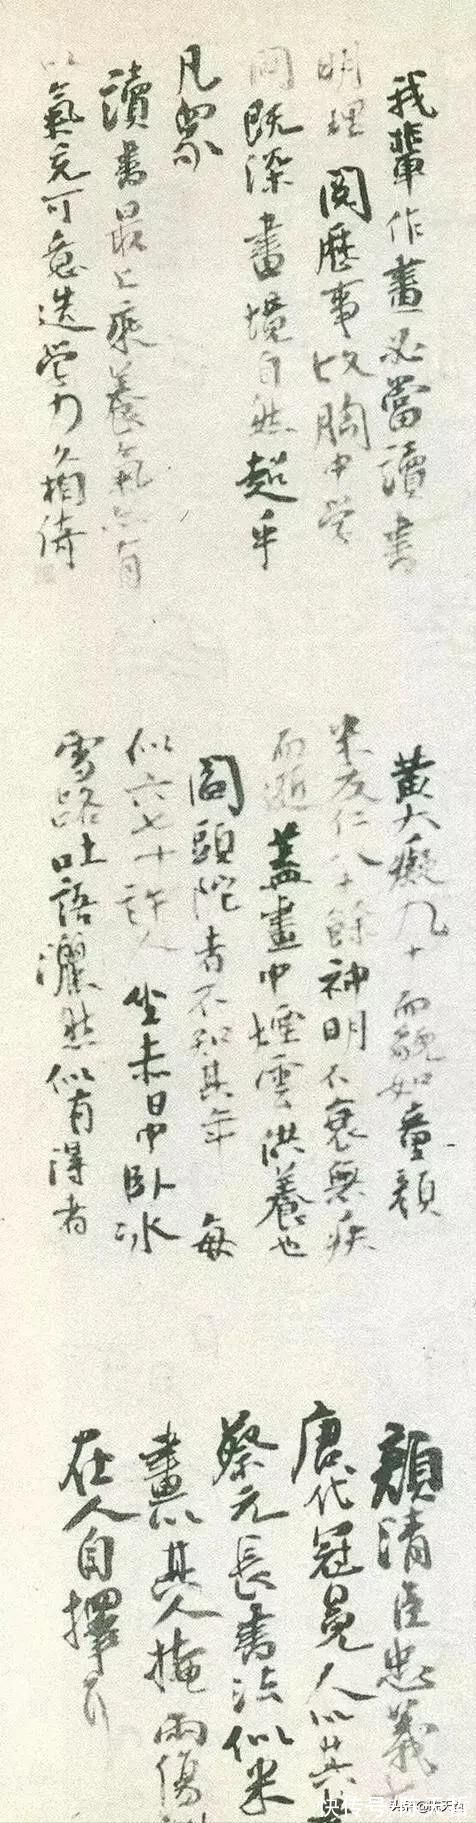 我輩作畫必當讀書
明理閱歷事故胸中學
問既深畫境自然超乎
凡衆
讀書最上乘養氣亦有
以氣充可意造學力久相倚
黃大癡九十而貌如童顏
米友仁八十餘神明不衰無疾
而逝蓋畫中煙雲供養也
閻頭陀者不知其年每
似六七十許人坐赤日中臥冰
雪路吐語灑然似有得者
顏清臣忠義
唐代冠冕人以其
蔡元長書法似米
畫以其人掩兩傷
在人自擇耳
头条@